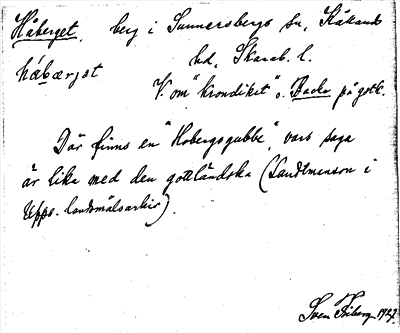 Håberget, berg i Sunnersbergs sn, Kållands
hd, Skarab. l.
håbærjət
V. om "krondiket" o. Backa på gotl.
Där finns en "Hobergsgubbe", vars saga
är lika med den gottländska (Landtmanson i
Upps. landsmålsarkiv).
Sven Friberg 1927.